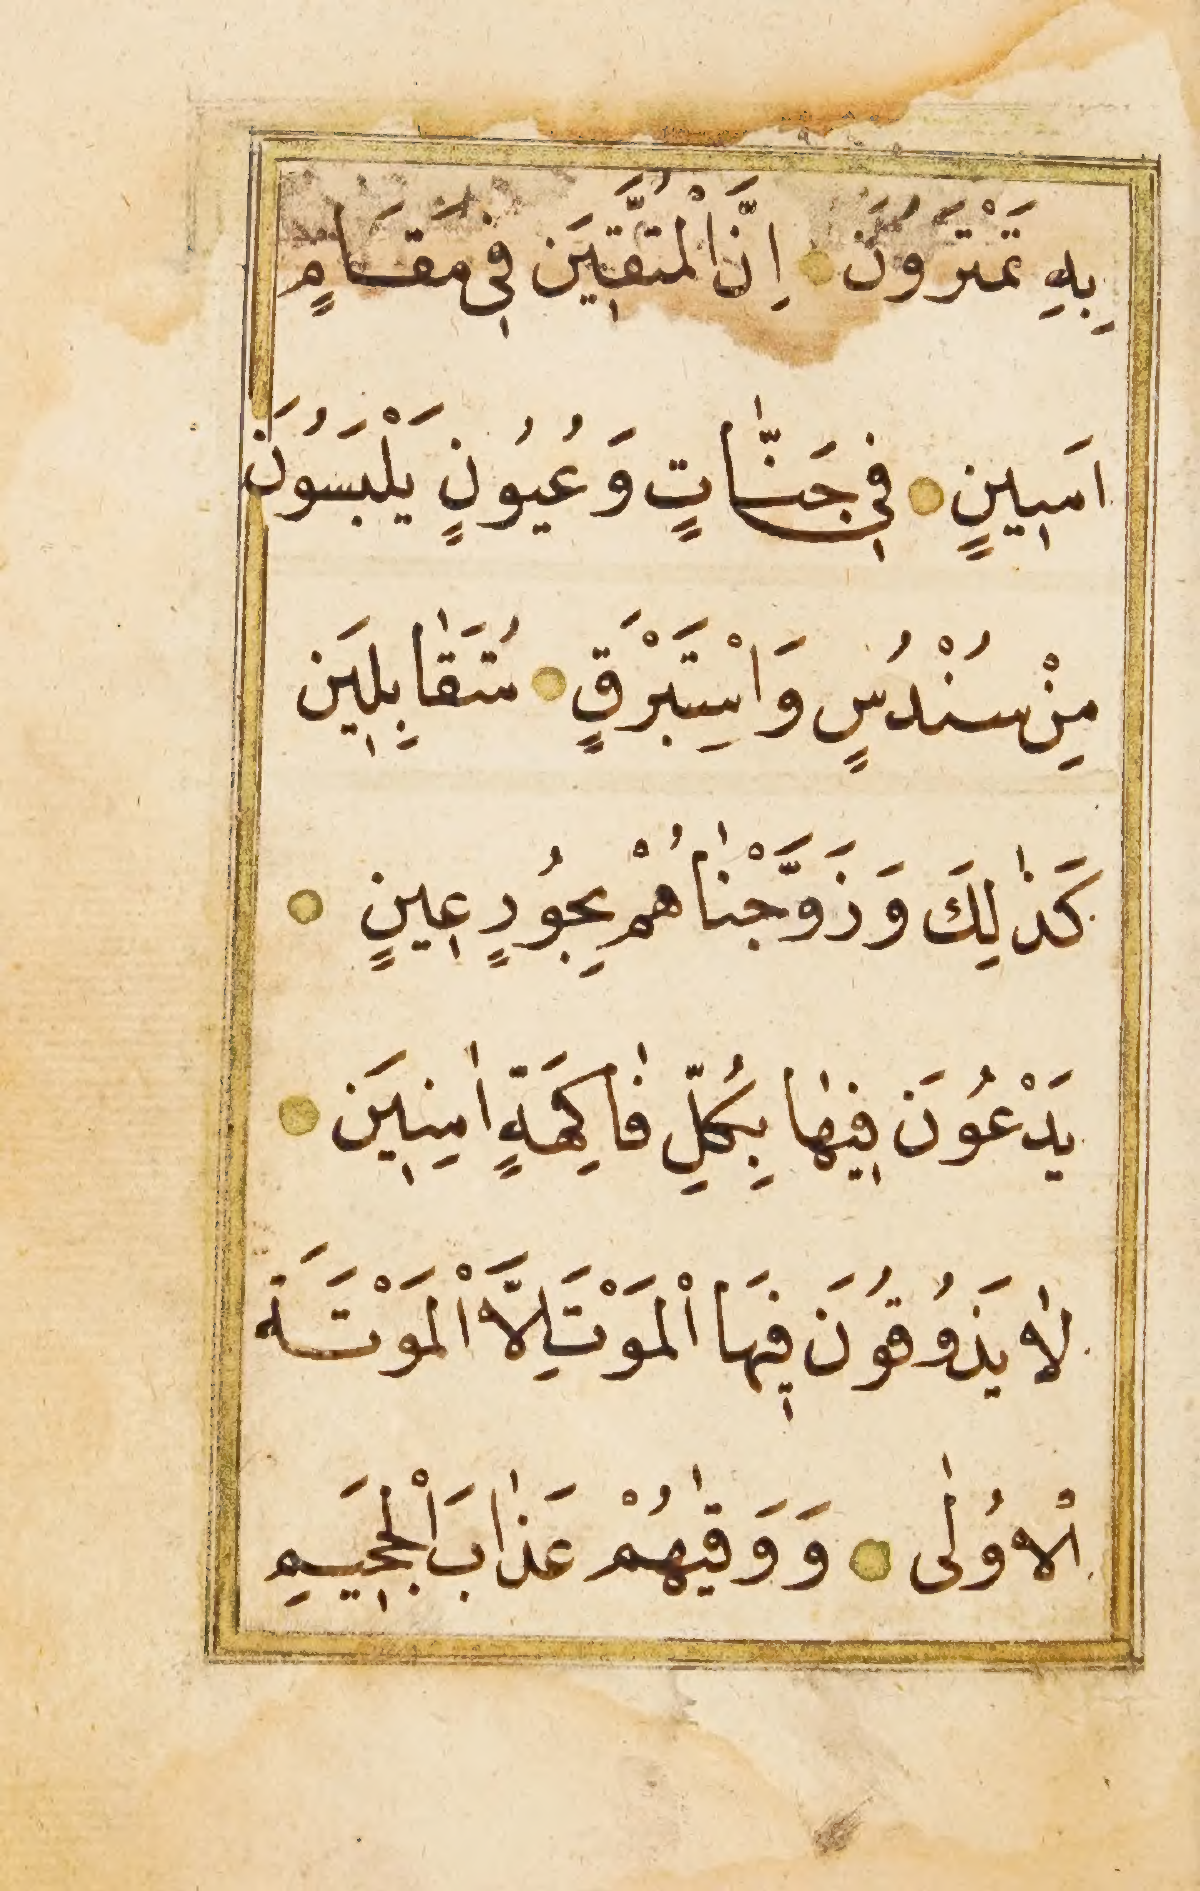 بِهِ تَمْتَرَوُنَ اِنَّ الْمُتَّقٖيَن فٖى مَقَامٍ
اَمٖينٍ فٖى جَنّٰاتٍ وَعُيُونٍ يَلْبَسُونَ
مِنْ سُنْدُسٍ وَاْسِتَبْرَقٍ مُتَقٰابِلٖيَن
كَذٰلِكَ وَزَوَّجْنٰاهُمْ بِحُورٍ عٖينٍ
يَدْعُونَ فٖيهٰا بِكُلِّ فٰاكِهَةٍ اٰمِنٖيَن
لٰا يَذَوُقُونَ فٖيهَا اْلمَوْتَ اِلَّا اْلمَوْتَةَ
اْلاوُلٰى وَوَقٰيهُمْ عَذٰابَ اْلجَحٖيَمِ